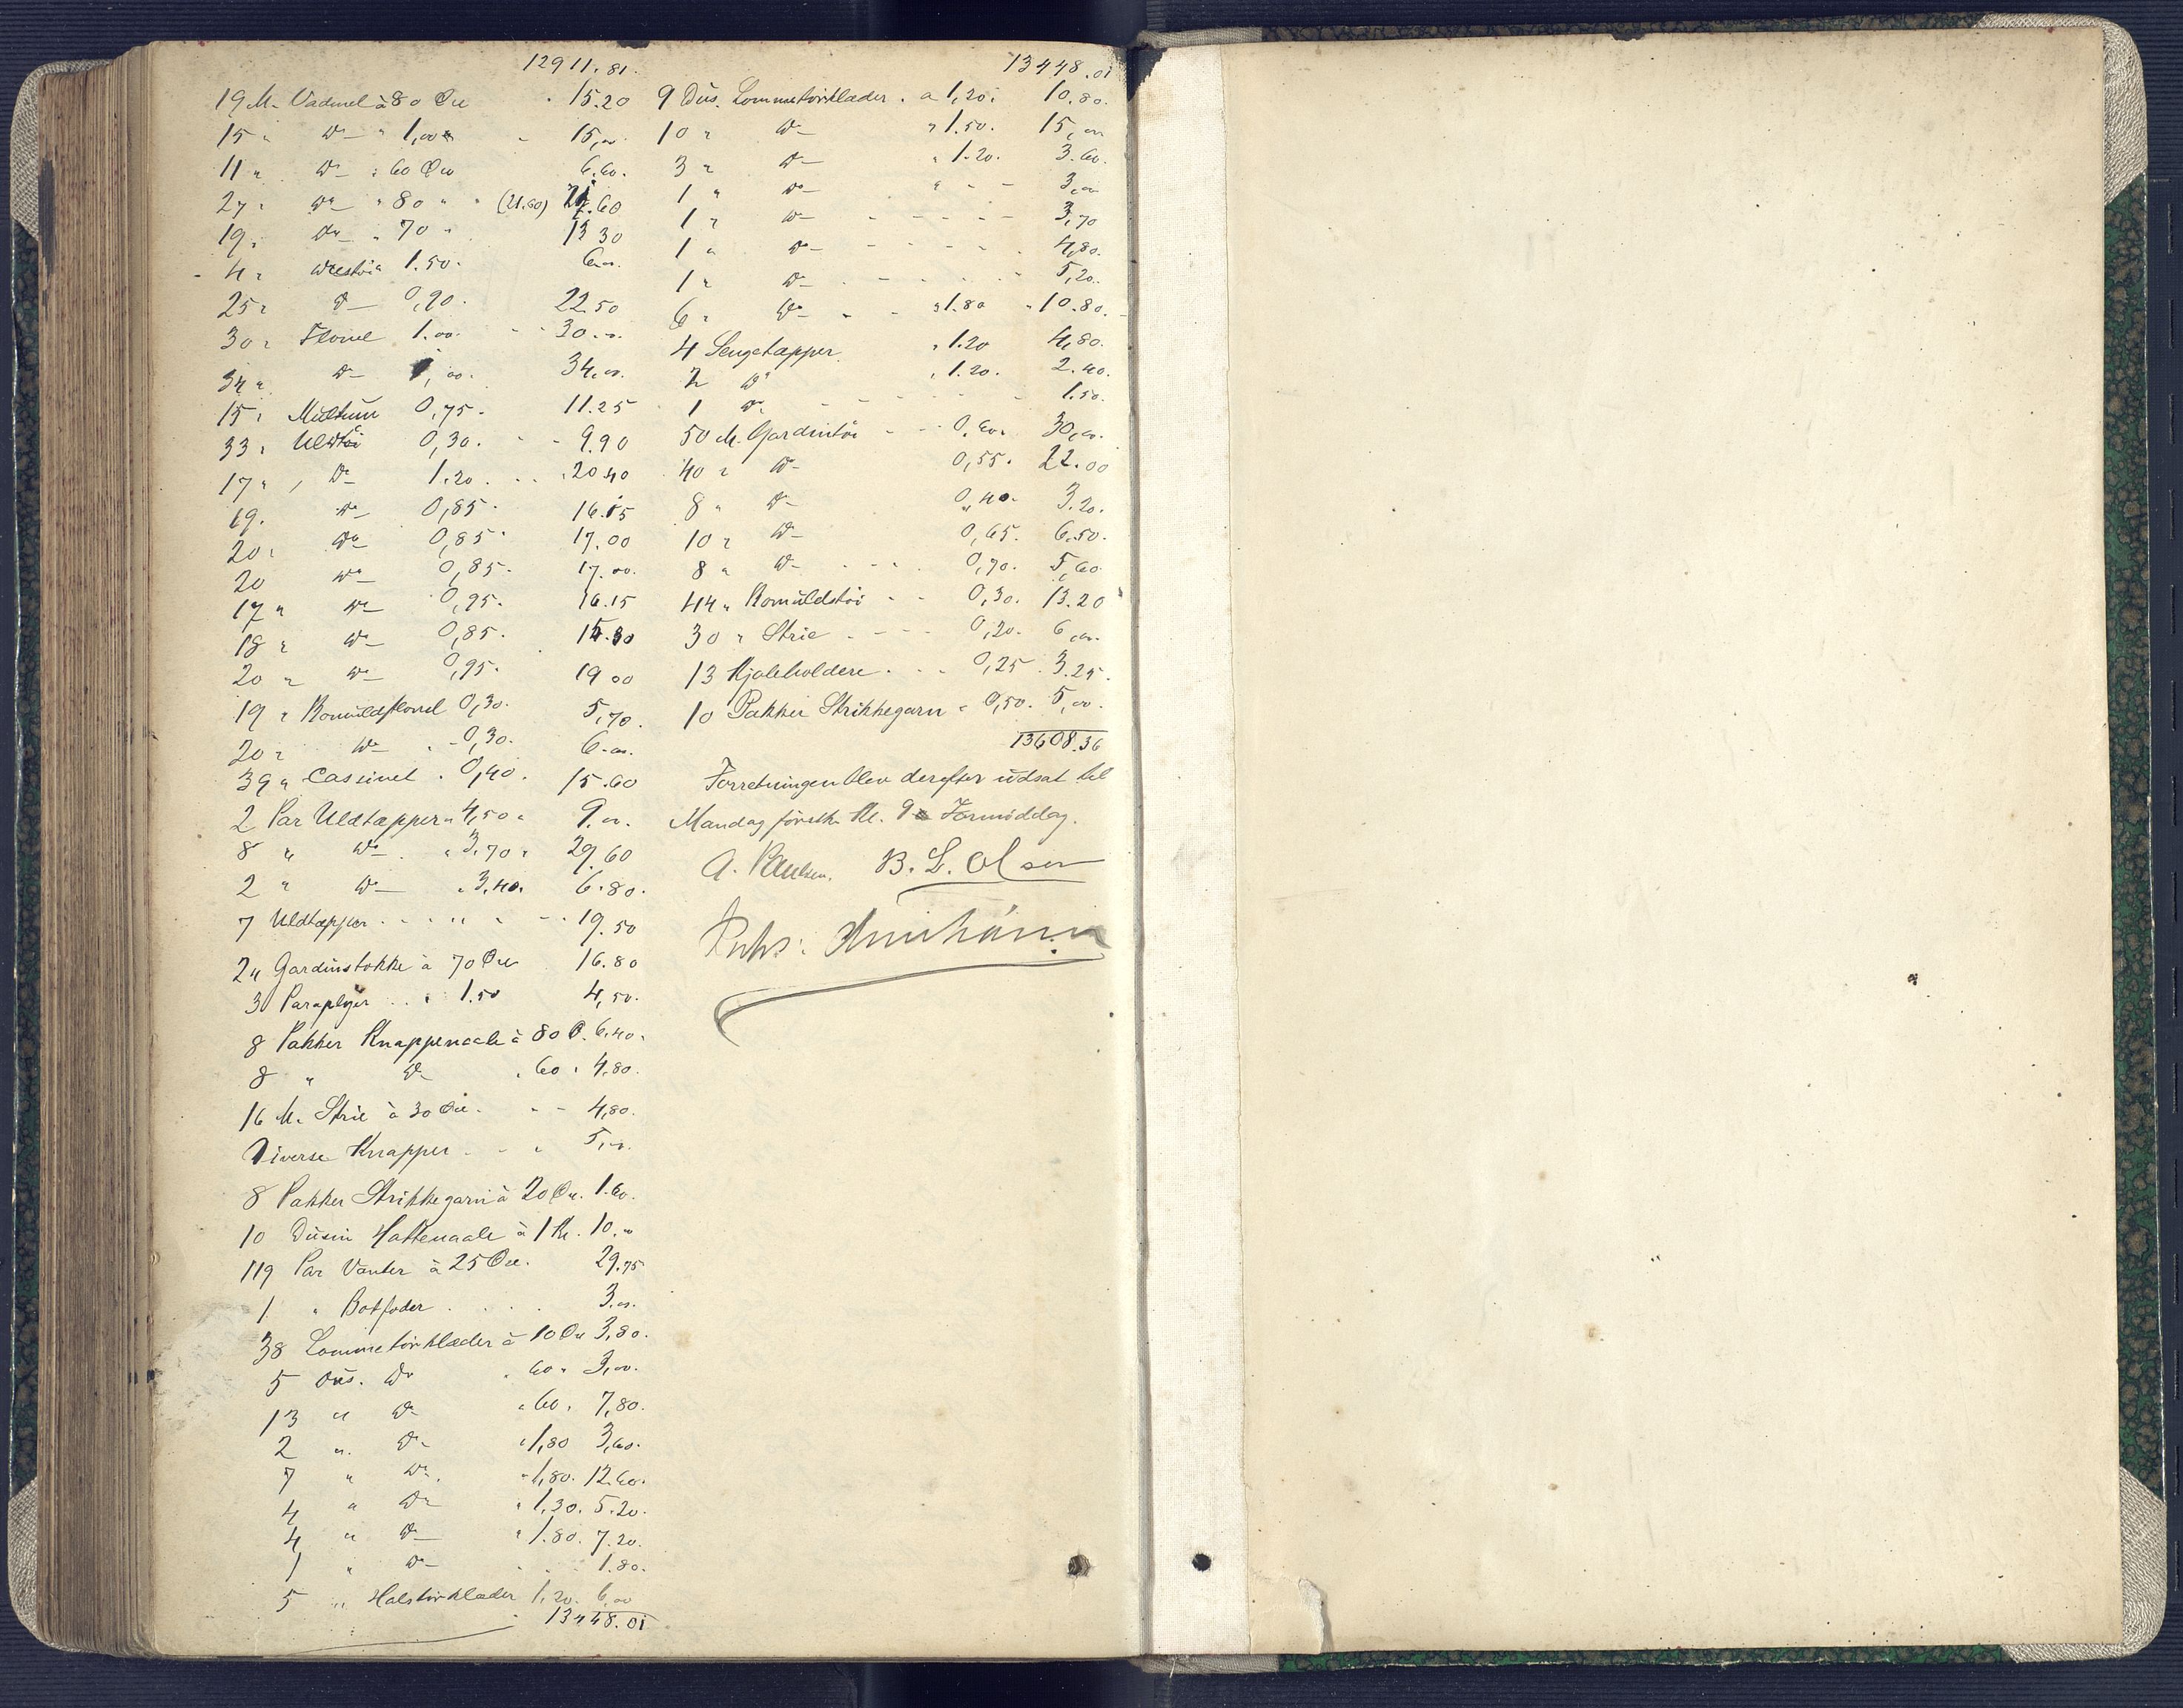 12911.81.
19 M. Vadmel à 80 Øre 15.20
15 " Do " 1,00 " 15,00
11 " Do " 60 Øre 6.60.
27 " Do " 80 " " (21.60) 21.60
19 " Do " 70 " 13 30
4 " 1.50. 6.00.
25 " Do 0,90. 22.50
30 " Flonel 1.00. 30.00.
34 " Do 1,00. 34.00.
15 " Multum 0,75. 11.25
33 " Uldtøi 0,30. 9.90
17 " Do 1.20. 20 40
19. Do 0,85. 16.15
20 " Do 0,85. 17.00
20 Do 0,85. 17.00.
17 " Do 0,95. 16.15
18 " Do 0,85. 15.30
20 " Do 0,95. 19 00
19 " Bomuldsflonel 0,30. 5,70.
20 " Do 0,30. 6.00.
39 " Cassinet . 0,40. 15.60
2 Par Uldtæpper " 4,50 " 9.00.
8 " Do " 3.70 " 29.60
2 " Do " 3.40. 6.80.
7 Uldtæpper 19.50
24 Gardinstokke à 70 Øre 16.80
3 Paraplyer " 1.50 4,50.
8 Pakker Knappenaale à 80 Ø. 6.40.
8 " Do " 60 " 4.80.
16 M. Strie à 30 Øre. 4,80.
Diverse Knapper 5,00.
8 Pakker Strikkegarn à 20 Øre. 1.60.
10 Dusin Hattenaale à 1 Kr. 10.00
119 Par Vanter à 25 Øre. 29.75
1 " Botfoder 3.00.
38 Lommetørklæder à 10 Øre 3,80.
5 Dus. Do " 60 " 3,00.
13 " Do " 60 " 7,80.
2 " Do " 1,80 3,60.
7 " Do " 1,80. 12.60.
4 " Do " 1,30. 5.20.
4 " Do " 1.80. 7.20.
1 " Do 1.80.
5 " Halstørklæder 1,20. 6,00
13448.01
13448.01
9 Dus. Lommetørklæder . a 1,20. 10.80.
10 " Do " 1.50. 15,00
3 " Do " 1.20. 3.60.
1 " Do " 3,00
1 " Do 3,70
1 " Do 4,80.
1 " Do 5,20.
6 " Do " 1.80 10.80.
4 Sengetæpper " 1.20 4,80.
2 Do " 1.20. 2.40.
1 Do 1.50.
50 M. Gardintøi 0.60. 30,00.
40 " Do 0,55. 22.00
8 " Do 0,40. 3.20.
10 " Do 0,65. 6.50.
8 " Do 0,70. 5,60
44 " Bomuldstøi 0,30. 13.20
30 " Strie 0,20. 6,00.
13 Kjoleholdere 0,25 3.25.
10 Pakker Strikkegarn " 0,50. 5,00.
13608.36
Forretningen blev derefter udsat til
Mandag førstk. Kl. 9 Formiddag.
A. Paulsen. B. L. Olsen